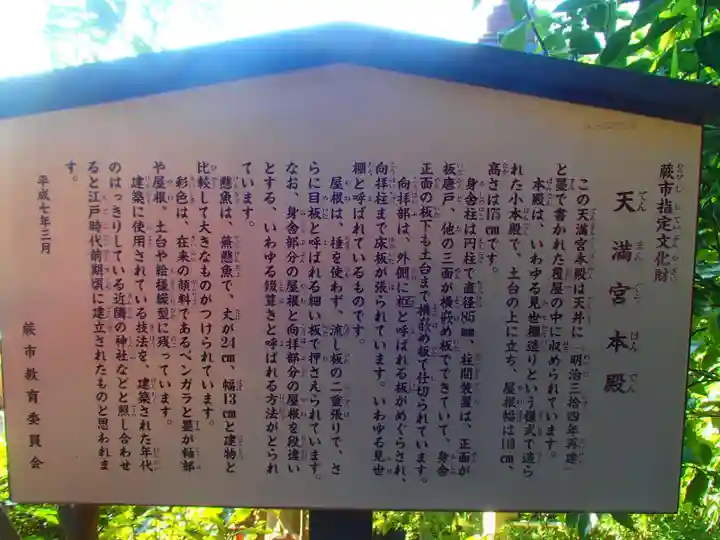 蕨市指定文化財
天満宮本殿
この天満宮本殿は天井に「明治三拾四年再建」
と墨で書かれた覆屋の中に収められています。
本殿は、いわゆる見世棚造りという様式で造ら
れた小本殿で、土台の上に立ち、屋根幅は110㎝、
高さは175㎝です。
身舎柱は円柱で直径85㎜、柱間装置は、正面が
板唐戸、他の三面が横嵌め板でできていて、身舎
正面の板下も土台まで横嵌め板で仕切られています。
向拝部は、外側に框と呼ばれる板がめぐらされ、
向拝柱まで床板が張られています。いわゆる見世
棚と呼ばれているものです。
屋根は、棰を使わず、流し板の二重張りで、さ
らに目板と呼ばれる細い板で押さえられています。
なお、身舎部分の屋根と向拝部分の屋根を段違い
とする、いわゆる錣葺きと呼ばれる方法がとられ
ています。
懸魚は、蕪懸魚で、丈が24㎝、幅43㎝と建物と
比較して大きなものがつけられています。
彩色は、在来の顔料であるベンガラと墨が軸部
や屋根、土台や絵様繰型に残っています。
建築に使用されている技法を、建築された年代
のはっきりしている近隣の神社などと照し合わせ
ると江戸時代前期頃に建立されたものと思われま
す。
平成七年三月
蕨市教育委員会